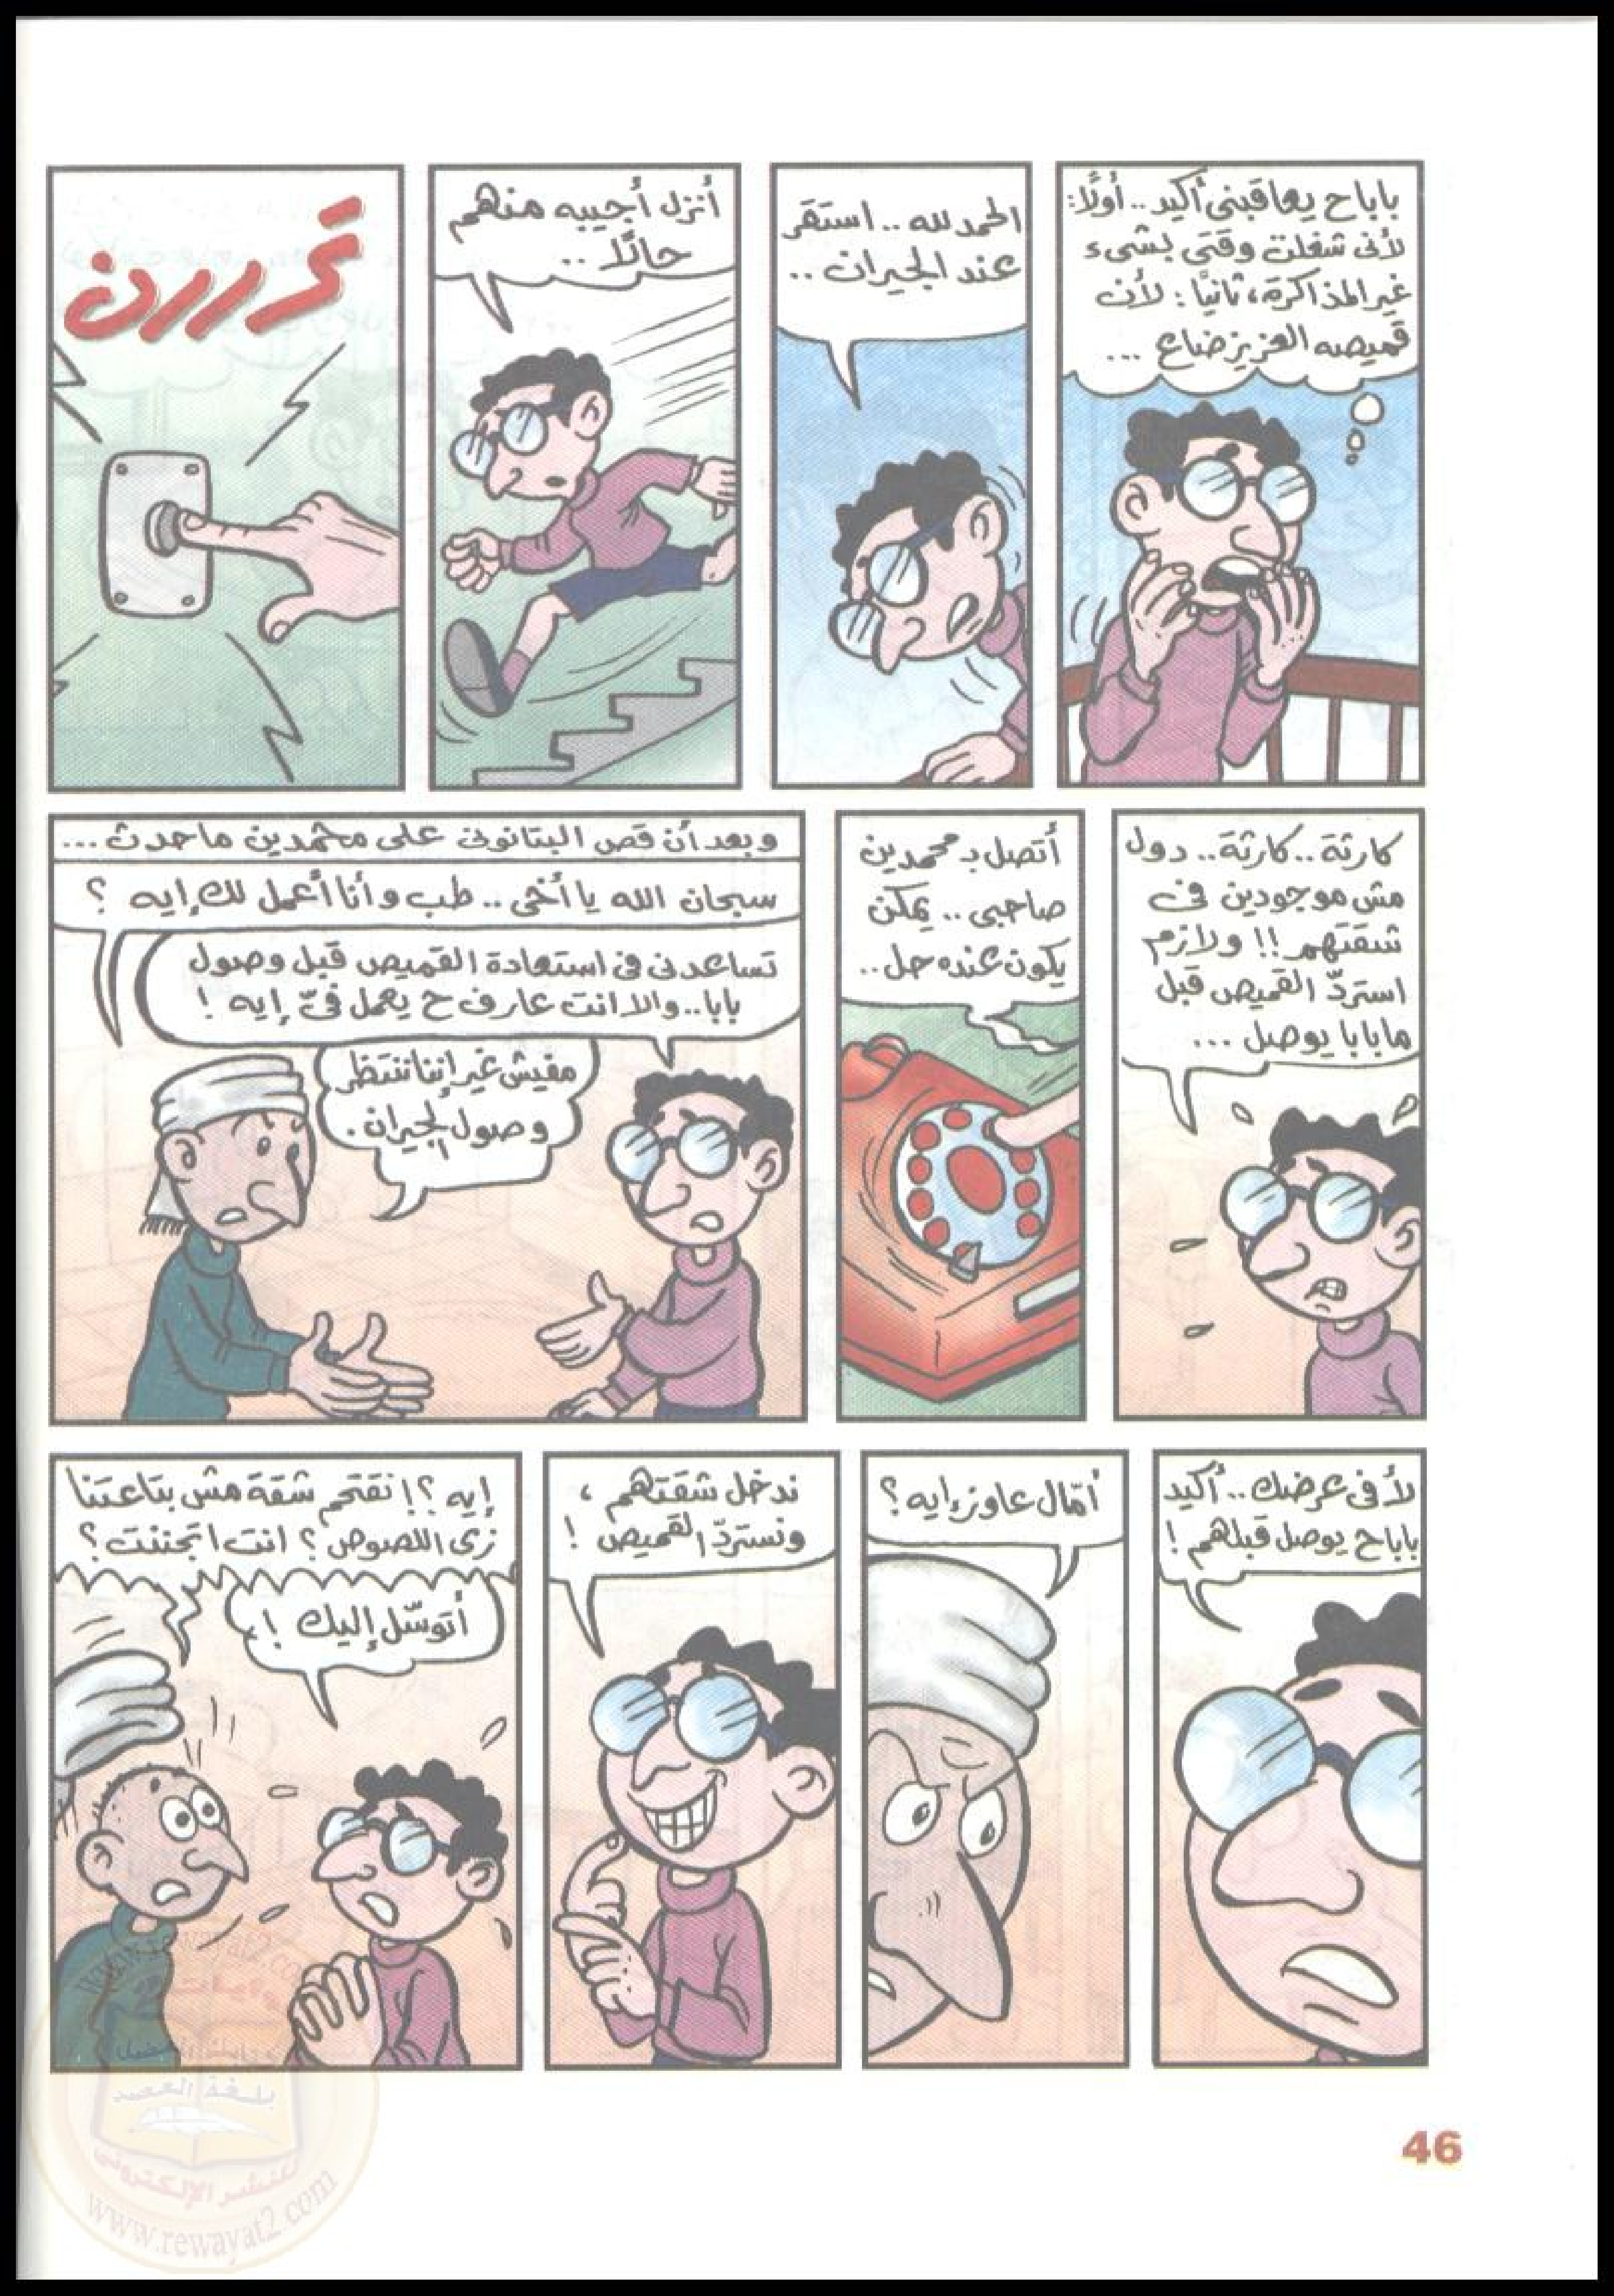 بابا ح يعاقبنى أكيد .. أولًا:
لأنى شغلت وقتى بشىء
غير المذاكرة، ثانيًا: لأن
قميصه العزيز ضاع ...
الحمد لله .. استقر
عند الجيران ..
أنزل أجيبه منهم
حالًا ..
تررررن
كارثة .. كارثة .. دول
مش موجودين فى
شقتهم !! ولازم
استردّ القميص قبل
ما بابا يوصل ...
أتصل بـ محمدين
صاحبى .. يمكن
يكون عنده حل ..
وبعد أن قص البتانونى على محمدين ما حدث ...
سبحان الله يا أخى .. طب وأنا أعمل لك إيه ؟
تساعدنى فى استعادة القميص قبل وصول
بابا .. والا انت عارف ح يعمل فىّ إيه !
مفيش غير إننا ننتظر
وصول الجيران .
لأ فى عرضك .. أكيد
بابا ح يوصل قبلهم !
أمّال عاوز إيه ؟
ندخل شقتهم ،
ونستردّ القميص !
إيه ؟! نقتحم شقة مش بتاعتنا
زى اللصوص ؟ انت اتجننت ؟
أتوسّل إليك !
46
بلغة العصر
للنشر الإلكترونى
www.rewayat2.com